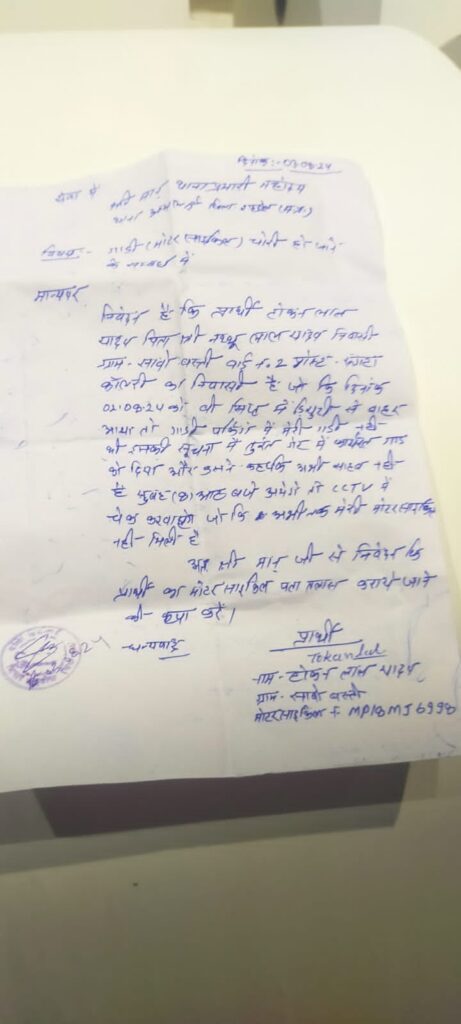 दिनांक:- 03-08-24
सेवा में
श्री मान् थाना प्रभारी महोदय
थाना जिला शहडोल (म.प्र.)
विषय:- गाडी (मोटर सायकिल) चोरी हो जाने
के सम्बंध में
मान्यवर
निवेदन है कि प्रार्थी टोकन लाल
यादव पिता श्री नत्थू लाल यादव निवासी
ग्राम- साबो बस्ती वार्ड न. 2 पोस्ट-
कालरी का निवासी है जो कि दिनांक
02-08-24 को बी सिफ्ट में डियुटी से बाहर
आया तो गाडी पार्किंग में मेरी गाडी नही
थी उसकी सूचना में तुरंत गेट में कार्यरत गार्ड
को दिया और उसने कहा कि अभी साहब नही
है सुबह (8) आठ बजे आयेगे तो CCTV में
चेक करवायेगे जो कि अभी तक मेरी मोटर साइकिल
नही मिली है
अतः श्री मान् जी से निवेदन कि
प्रार्थी का मोटर साइकिल पता तलाश कराये जाने
की कृपा करें।
धन्यवाद
प्रार्थी
Tokanlal
नाम- टोकन लाल यादव
ग्राम- साबो बस्ती
मोटर साइकिल न. MP18MJ6998